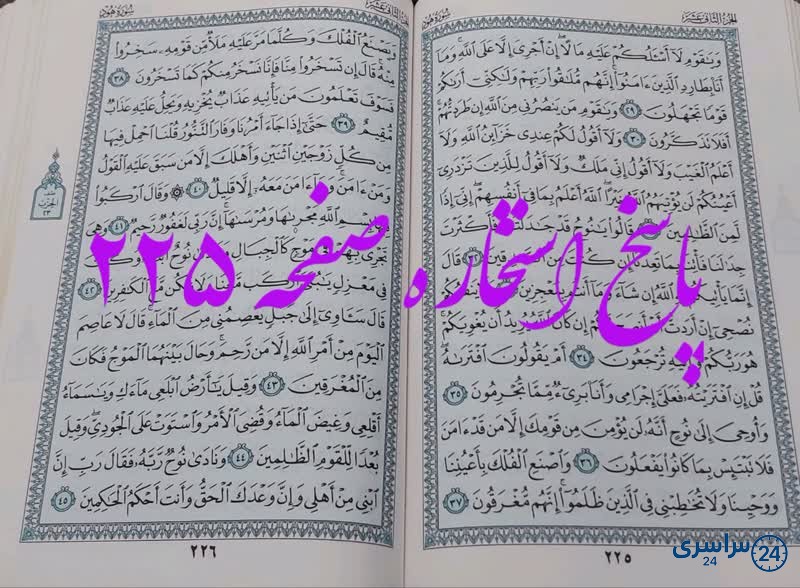 الجزء الثاني عشر
سورة هود
وَيَٰقَوْمِ لَآ أَسْـَٔلُكُمْ عَلَيْهِ مَالًا إِنْ أَجْرِىَ إِلَّا عَلَى ٱللَّهِ وَمَآ
أَنَا۠ بِطَارِدِ ٱلَّذِينَ ءَامَنُوٓا۟ إِنَّهُم مُّلَٰقُوا۟ رَبِّهِمْ وَلَٰكِنِّىٓ أَرَىٰكُمْ
قَوْمًا تَجْهَلُونَ ٢٩ وَيَٰقَوْمِ مَن يَنصُرُنِى مِنَ ٱللَّهِ إِن طَرَدتُّهُمْ
أَفَلَا تَذَكَّرُونَ ٣٠ وَلَآ أَقُولُ لَكُمْ عِندِى خَزَآئِنُ ٱللَّهِ وَلَآ
أَعْلَمُ ٱلْغَيْبَ وَلَآ أَقُولُ إِنِّى مَلَكٌ وَلَآ أَقُولُ لِلَّذِينَ تَزْدَرِىٓ
أَعْيُنُكُمْ لَن يُؤْتِيَهُمُ ٱللَّهُ خَيْرًا ٱللَّهُ أَعْلَمُ بِمَا فِىٓ أَنفُسِهِمْ إِنِّىٓ إِذًا
لَّمِنَ ٱلظَّٰلِمِينَ قَالُوا۟ يَٰنُوحُ قَدْ جَٰدَلْتَنَا فَأَكْثَرْتَ
جِدَٰلَنَا فَأْتِنَا بِمَا تَعِدُنَآ إِن كُنتَ مِنَ ٱلصَّٰدِقِينَ ٣٢ قَالَ
إِنَّمَا يَأْتِيكُم ٱللَّهُ إِن شَآءَ وَمَآ أَنتُم بِمُعْجِزِينَ
نُصْحِىٓ إِنْ أَرَدتُّ أَنْ أَنصَحَ لَكُمْ إِن كَانَ ٱللَّهُ يُرِيدُ أَن يُغْوِيَكُمْ
هُوَ رَبُّكُمْ وَإِلَيْهِ تُرْجَعُونَ ٣٤ أَمْ يَقُولُونَ ٱفْتَرَىٰهُ
قُلْ إِنِ ٱفْتَرَيْتُهُۥ فَعَلَىَّ إِجْرَامِى وَأَنَا۠ بَرِىٓءٌ مِّمَّا تُجْرِمُونَ ٣٥
وَأُوحِىَ إِلَىٰ نُوحٍ أَنَّهُۥ لَن يُؤْمِنَ مِن قَوْمِكَ إِلَّا مَن قَدْ ءَامَنَ
فَلَا تَبْتَئِسْ بِمَا كَانُوا۟ يَفْعَلُونَ ٣٦ وَٱصْنَعِ ٱلْفُلْكَ بِأَعْيُنِنَا
وَوَحْيِنَا وَلَا تُخَٰطِبْنِى فِى ٱلَّذِينَ ظَلَمُوٓا۟ إِنَّهُم مُّغْرَقُونَ ٣٧
٢٢٥
الجزء الثاني عشر
سورة هود
وَيَصْنَعُ ٱلْفُلْكَ وَكُلَّمَا مَرَّ عَلَيْهِ مَلَأٌ مِّن قَوْمِهِۦ سَخِرُوا۟
مِنْهُ قَالَ إِن تَسْخَرُوا۟ مِنَّا فَإِنَّا نَسْخَرُ مِنكُمْ كَمَا تَسْخَرُونَ ٣٨
فَسَوْفَ تَعْلَمُونَ مَن يَأْتِيهِ عَذَابٌ يُخْزِيهِ وَيَحِلُّ عَلَيْهِ عَذَابٌ
مُّقِيمٌ ٣٩ حَتَّىٰٓ إِذَا جَآءَ أَمْرُنَا وَفَارَ ٱلتَّنُّورُ قُلْنَا ٱحْمِلْ فِيهَا
مِن كُلٍّ زَوْجَيْنِ ٱثْنَيْنِ وَأَهْلَكَ إِلَّا مَن سَبَقَ عَلَيْهِ ٱلْقَوْلُ
وَمَنْ ءَامَنَ وَمَآ ءَامَنَ مَعَهُۥٓ إِلَّا قَلِيلٌ ٤٠ وَقَالَ ٱرْكَبُوا۟
ٱللَّهِ مَجْر۪ىٰهَا وَمُرْسَىٰهَآ إِنَّ رَبِّى لَغَفُورٌ رَّحِيمٌ ٤١ وَهِىَ
تَجْرِى بِهِمْ فِى مَوْجٍ كَٱلْجِبَالِ وَنَادَىٰ نُوحٌ ٱبْنَهُۥ وَكَانَ
فِى مَعْزِلٍ يَٰبُنَىَّ ٱرْكَب مَّعَنَا وَلَا تَكُن مَّعَ ٱلْكَٰفِرِينَ ٤٢
قَالَ سَـَٔاوِىٓ إِلَىٰ جَبَلٍ يَعْصِمُنِى مِنَ ٱلْمَآءِ قَالَ لَا عَاصِمَ
ٱلْيَوْمَ مِنْ أَمْرِ ٱللَّهِ إِلَّا مَن رَّحِمَ وَحَالَ بَيْنَهُمَا ٱلْمَوْجُ فَكَانَ
مِنَ ٱلْمُغْرَقِينَ ٤٣ وَقِيلَ يَٰٓأَرْضُ ٱبْلَعِى مَآءَكِ وَيَٰسَمَآءُ
أَقْلِعِى وَغِيضَ ٱلْمَآءُ وَقُضِىَ ٱلْأَمْرُ وَٱسْتَوَتْ عَلَى ٱلْجُودِىِّ وَقِيلَ
بُعْدًا لِّلْقَوْمِ ٱلظَّٰلِمِينَ ٤٤ وَنَادَىٰ نُوحٌ رَّبَّهُۥ فَقَالَ رَبِّ إِنَّ
ٱبْنِى مِنْ أَهْلِى وَإِنَّ وَعْدَكَ ٱلْحَقُّ وَأَنتَ أَحْكَمُ ٱلْحَٰكِمِينَ ٤٥
٢٢٦
الحزب
٢٣
پاسخ استخاره صفحه ۲۲۵
سراسری 24
24